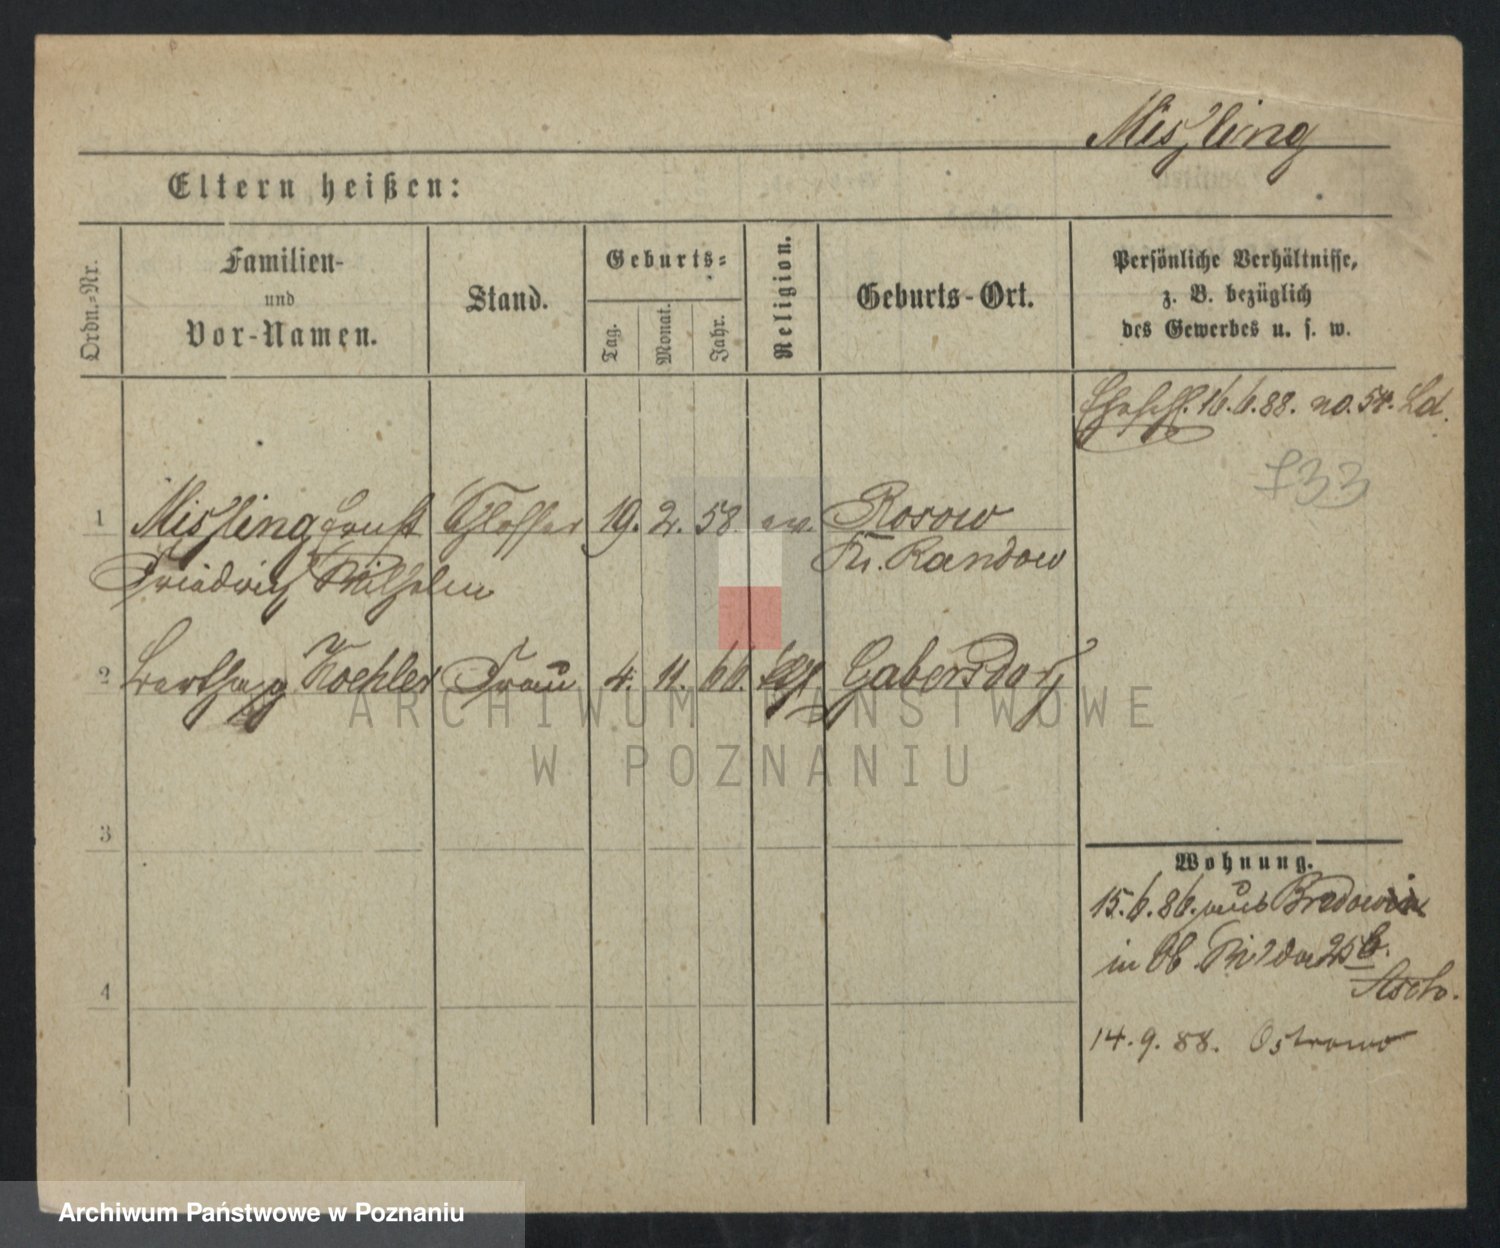 Missling
Eltern heißen:
Ordn.-Nr.
Familien-
und
Vor-Namen.
Stand.
Geburts-
Tag.
Monat.
Jahr.
Religion.
Geburts-Ort.
Persönliche Verhältnisse,
z. B. bezüglich
des Gewerbes u. s. w.
Eheschl. 16.6.88. no. 58. Ld.
733
1 Missling Ernst Schlosser 19. 2. 58. ev. Rosow
Friedrich Wilhelm Kr. Randow
2 Bertha Koehler Frau 4. 11. 66. Gabersdorf
ARCHIWUM PAŃSTWOWE
W POZNANIU
3
4
Wohnung.
15.6.86. aus Bredow
in Ob. Wilda 25b.
14.9.88. Ostrowo
Archiwum Państwowe w Poznaniu